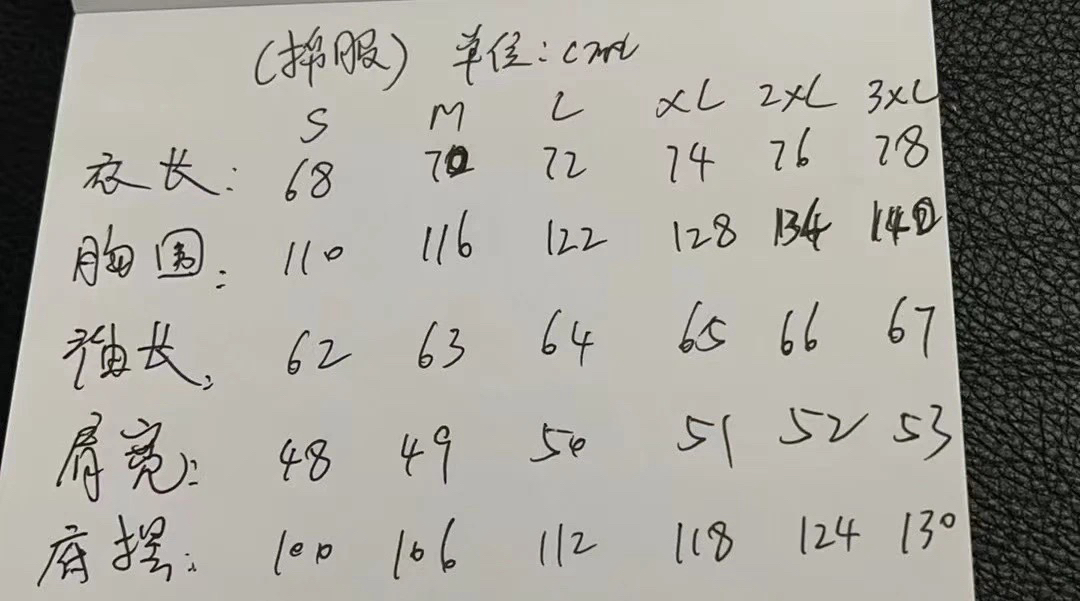 (棉服) 单位: cm
S M L XL 2XL 3XL
衣长: 68 70 72 74 76 78
胸围: 110 116 122 128 134 140
袖长: 62 63 64 65 66 67
肩宽: 48 49 50 51 52 53
底摆: 100 106 112 118 124 130